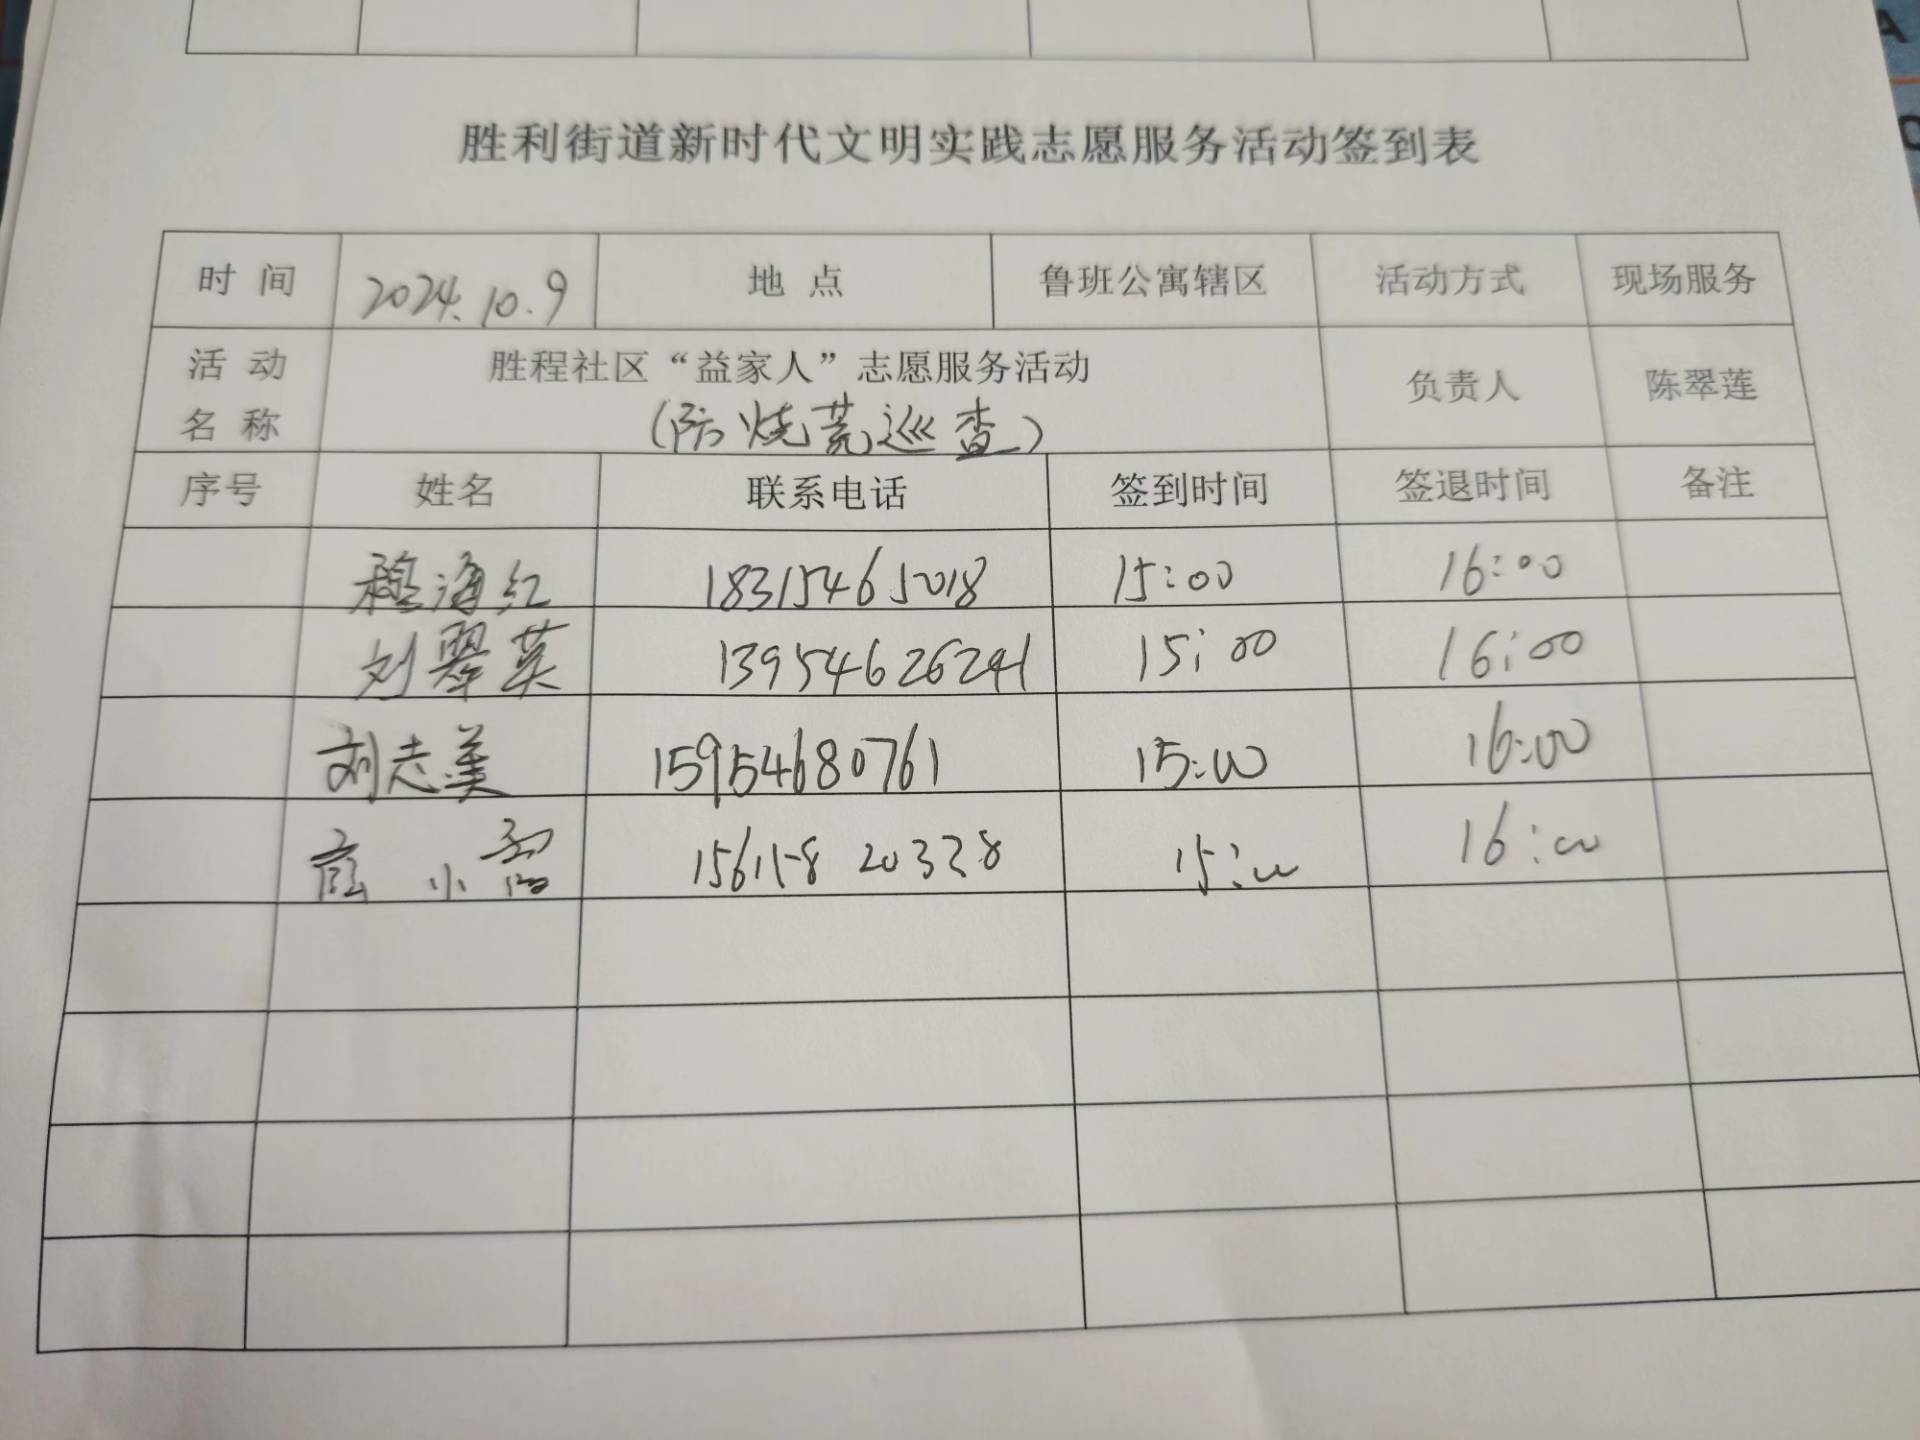 胜利街道新时代文明实践志愿服务活动签到表
时间 2024.10.9 地点 鲁班公寓辖区 活动方式 现场服务
活动名称 胜程社区“益家人”志愿服务活动 负责人 陈翠莲
（防烧荒巡查）
序号 姓名 联系电话 签到时间 签退时间 备注
穆海红 18315465018 15:00 16:00
刘翠英 13954626241 15:00 16:00
刘志美 15954680761 15:00 16:00
小 15:00 16:00